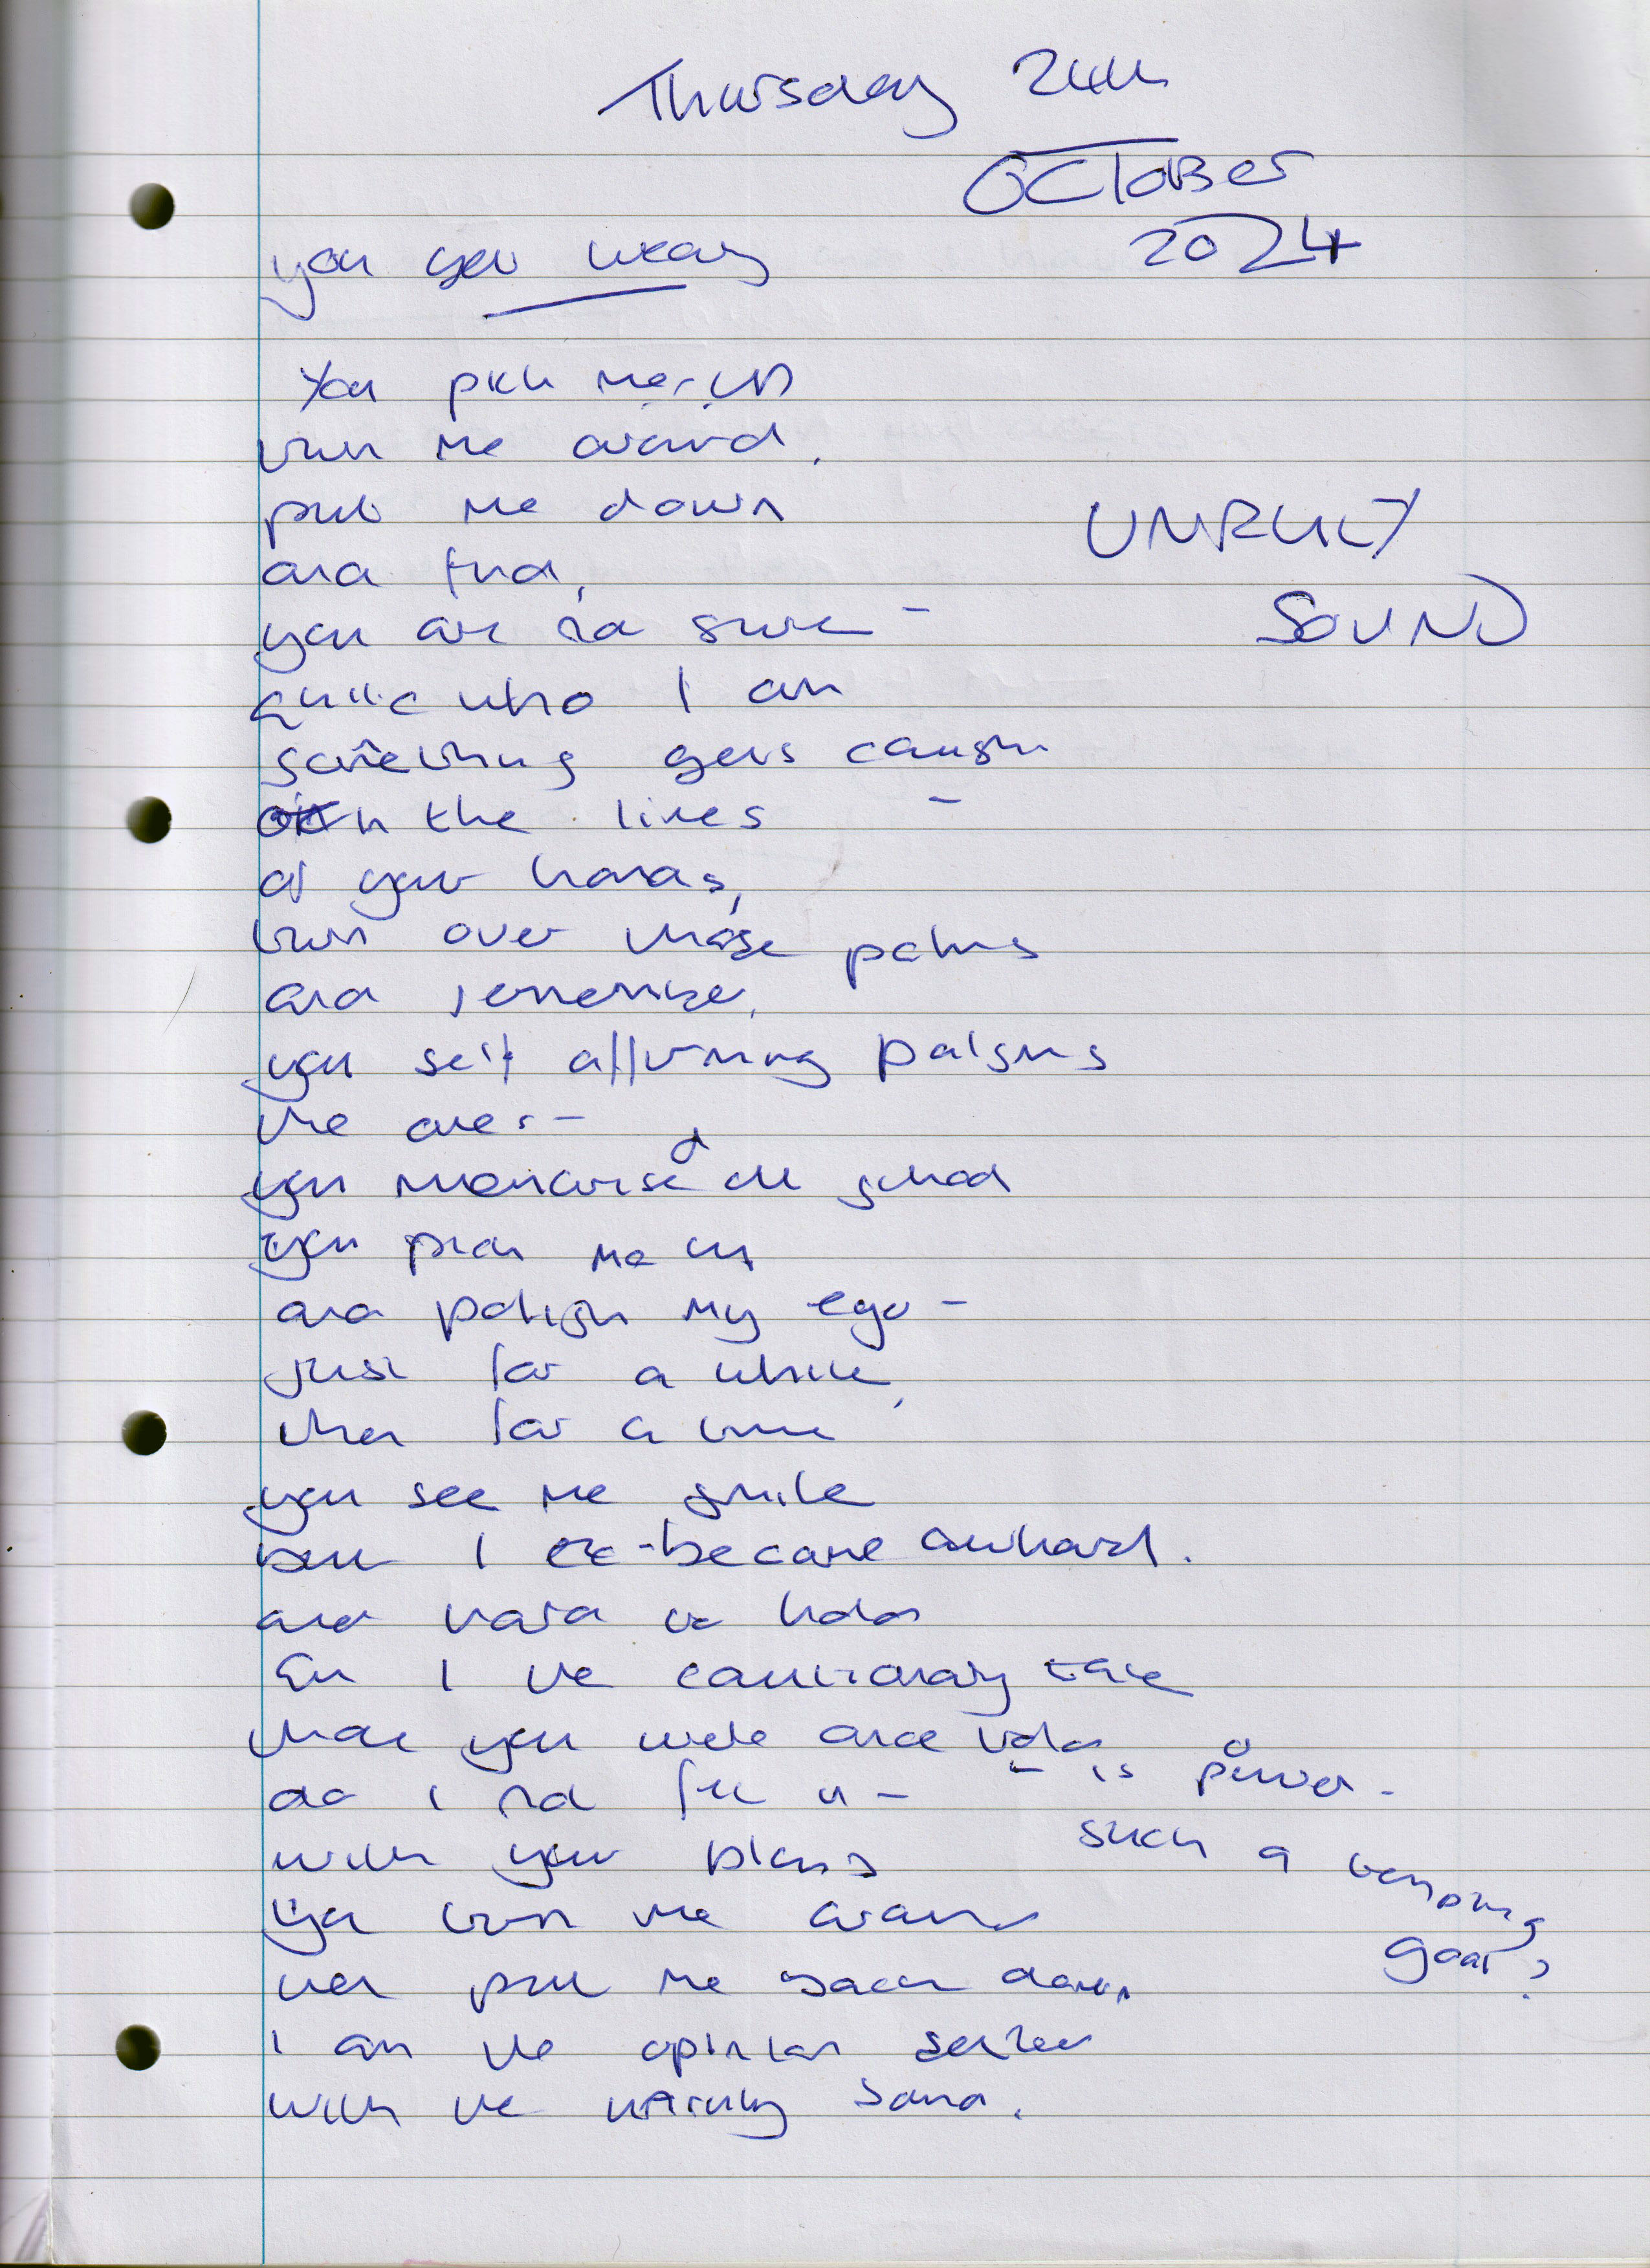 Thursday 24th
October
2024
you grow weary
You pick me up
turn me around,
put me down
and find,
you are not sure -
quite who I am
something gets caught
in the lines -
of your hands,
turn over those palms
and remember,
you self affirming
the ones -
you memorised at school
you pick me up
and polish my ego -
just for a while,
then for a time
you see me smile
but I become awkward.
and hard to hold
am I the cautionary tale
that you were once told,
do I not fit in -
with your plans
is power -
such a
goal?
you turn me around
then put me back down
I am the opinion seeker
with the unruly sound.
UNRULY
SOUND